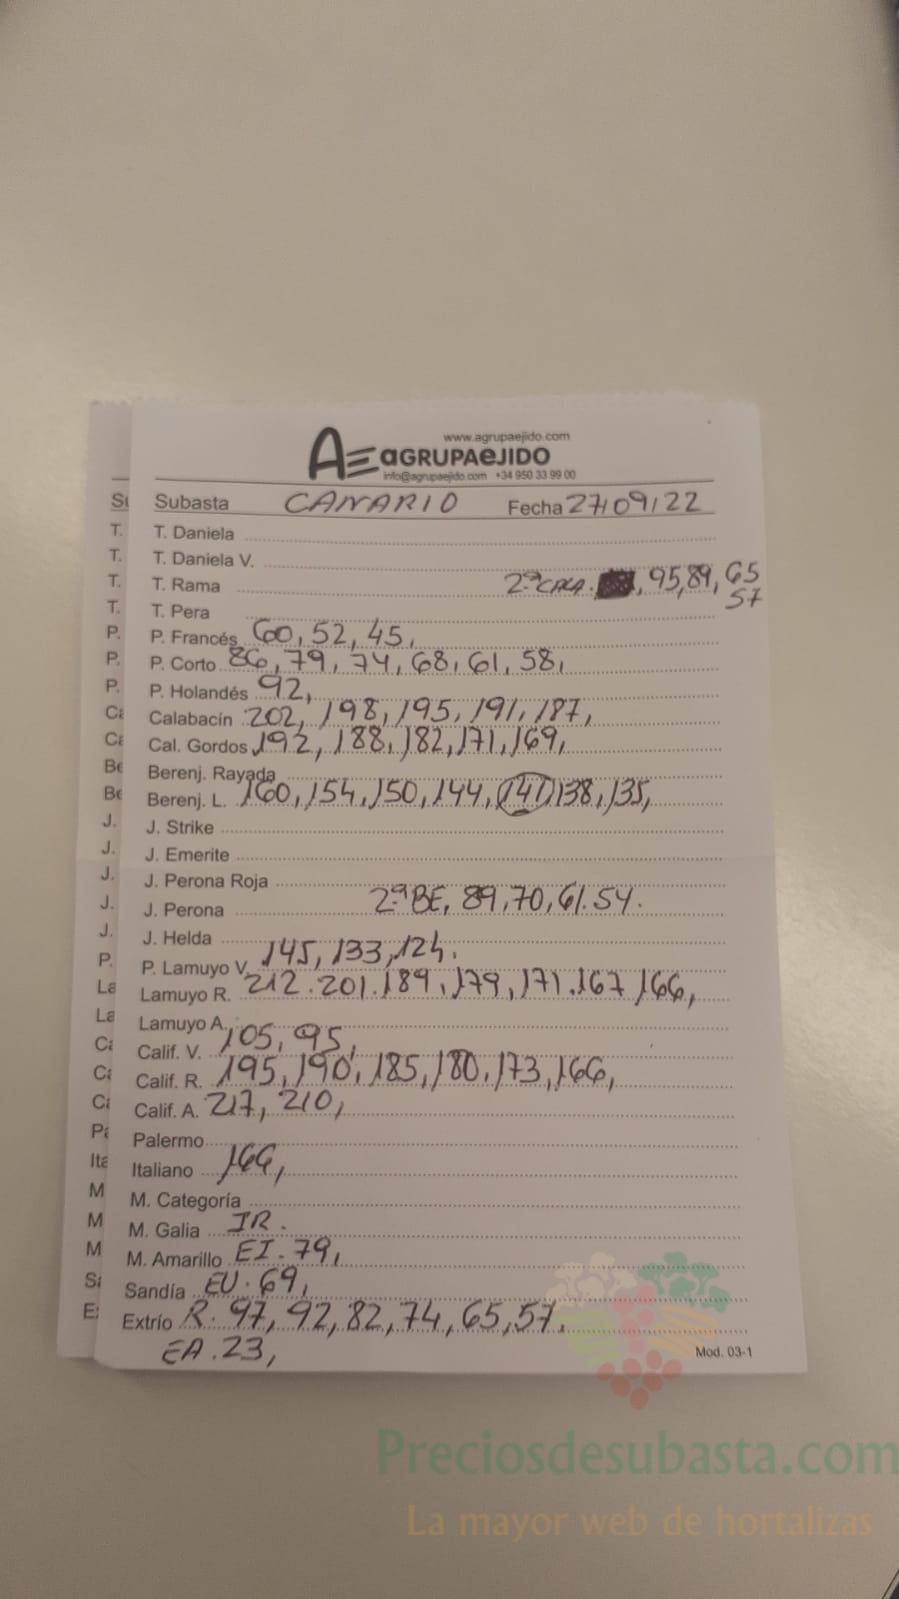 www.agrupaejido.com
AE aGRUPAeJIDO
info@agrupaejido.com +34 950 33 99 00
Subasta CANARIO Fecha 27/09/22
T. Daniela
T. Daniela V.
T. Rama 2ª CALA. , 95, 89, 65
57
T. Pera
P. Francés 60, 52, 45,
P. Corto 86, 79, 74, 68, 61, 58,
P. Holandés 92,
Calabacín 202, 198, 195, 191, 187,
Cal. Gordos 192, 188, 182, 171, 169,
Berenj. Rayada
Berenj. L. 160, 154, 150, 144, 141, 138, 135,
J. Strike
J. Emerite
J. Perona Roja
J. Perona 2ª BE, 89, 70, 61. 54.
J. Helda
P. Lamuyo V. 145, 133, 124.
Lamuyo R. 212. 201. 189, 179, 171. 167 166,
Lamuyo A.
Calif. V. 105, 95,
Calif. R. 195, 190, 185, 180, 173, 166,
Calif. A. 217, 210,
Palermo
Italiano 166,
M. Categoría
M. Galia IR.
M. Amarillo EI. 79,
Sandía EU. 69,
Extrío R. 97, 92, 82, 74, 65, 57,
EA. 23,
Mod. 03-1
Su
T.
T.
T.
T.
P.
P.
P.
Ca
Ca
Be
Be
J.
J.
J.
J.
J.
P.
La
La
Ca
Ca
Ca
Pa
Ita
M
M
M
Sa
E
Preciosdesubasta.com
La mayor web de hortalizas